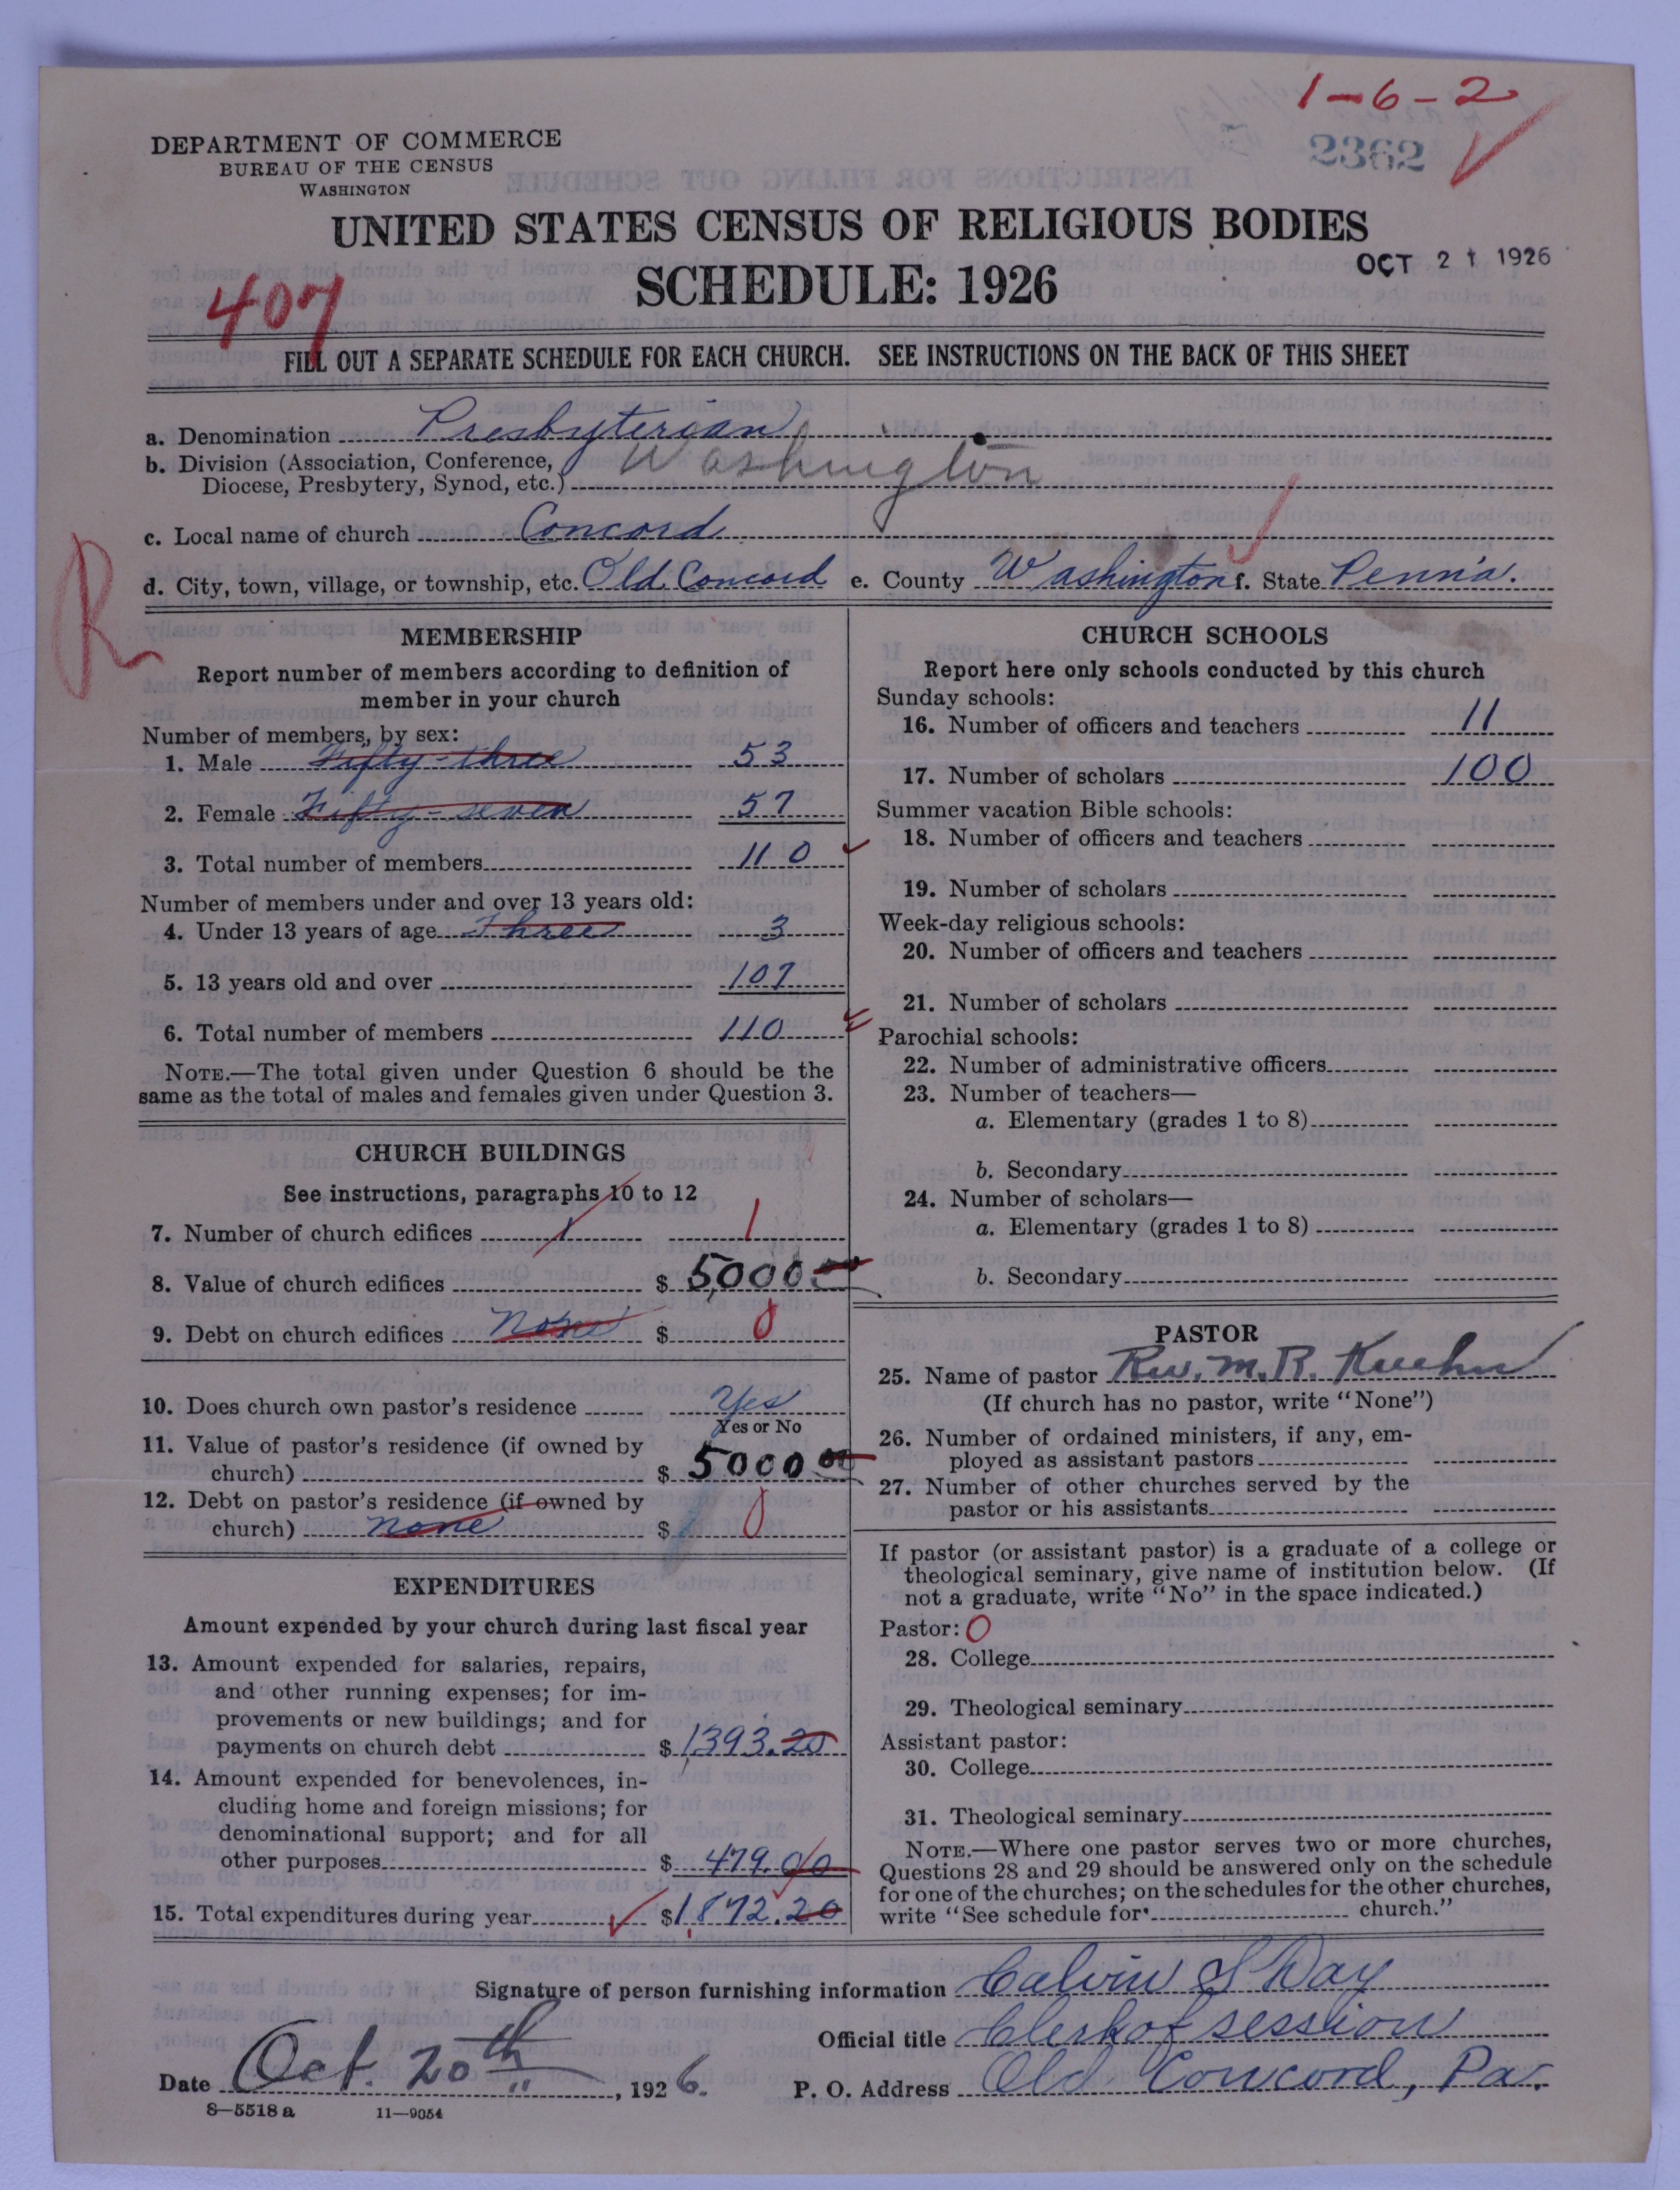 1-6-2
2362
DEPARTMENT OF COMMERCE
BUREAU OF THE CENSUS
WASHINGTON
UNITED STATES CENSUS OF RELIGIOUS BODIES
OCT 21 1926
SCHEDULE: 1926
407
FILL OUT A SEPARATE SCHEDULE FOR EACH CHURCH. SEE INSTRUCTIONS ON THE BACK OF THIS SHEET
a. Denomination Presbyterian
b. Division (Association, Conference, Washington
Diocese, Presbytery, Synod, etc.)
c. Local name of church Concord
d. City, town, village, or township, etc. Old Concord e. County Washington f. State Penn'a.
R
MEMBERSHIP
Report number of members according to definition of
member in your church
Number of members, by sex:
1. Male Fifty-three 53
2. Female Fifty-seven 57
3. Total number of members 110
Number of members under and over 13 years old:
4. Under 13 years of age Three 3
5. 13 years old and over 107
6. Total number of members 110
NOTE.—The total given under Question 6 should be the
same as the total of males and females given under Question 3.
CHURCH BUILDINGS
See instructions, paragraphs 10 to 12
7. Number of church edifices 1 1
8. Value of church edifices $ 5,000 00
9. Debt on church edifices None $ 0
10. Does church own pastor's residence Yes
Yes or No
11. Value of pastor's residence (if owned by
church) $ 5000 00
12. Debt on pastor's residence (if owned by
church) none $ 0
EXPENDITURES
Amount expended by your church during last fiscal year
13. Amount expended for salaries, repairs,
and other running expenses; for im-
provements or new buildings; and for
payments on church debt $ 1,393.20
14. Amount expended for benevolences, in-
cluding home and foreign missions; for
denominational support; and for all
other purposes $ 479.00
15. Total expenditures during year $ 1,872.20
CHURCH SCHOOLS
Report here only schools conducted by this church
Sunday schools:
16. Number of officers and teachers 11
17. Number of scholars 100
Summer vacation Bible schools:
18. Number of officers and teachers
19. Number of scholars
Week-day religious schools:
20. Number of officers and teachers
21. Number of scholars
Parochial schools:
22. Number of administrative officers
23. Number of teachers—
a. Elementary (grades 1 to 8)
b. Secondary
24. Number of scholars—
a. Elementary (grades 1 to 8)
b. Secondary
PASTOR
25. Name of pastor Rev. M. R. Kuehn
(If church has no pastor, write "None")
26. Number of ordained ministers, if any, em-
ployed as assistant pastors
27. Number of other churches served by the
pastor or his assistants
If pastor (or assistant pastor) is a graduate of a college or
theological seminary, give name of institution below. (If
not a graduate, write "No" in the space indicated.)
Pastor: 0
28. College
29. Theological seminary
Assistant pastor:
30. College
31. Theological seminary
NOTE.—Where one pastor serves two or more churches,
Questions 28 and 29 should be answered only on the schedule
for one of the churches; on the schedules for the other churches,
write "See schedule for church."
Signature of person furnishing information Calvin S Day
Official title Clerk of session
Date Oct. 20th, 1926. P. O. Address Old Concord, Pa.
8—5518 a 11—9054